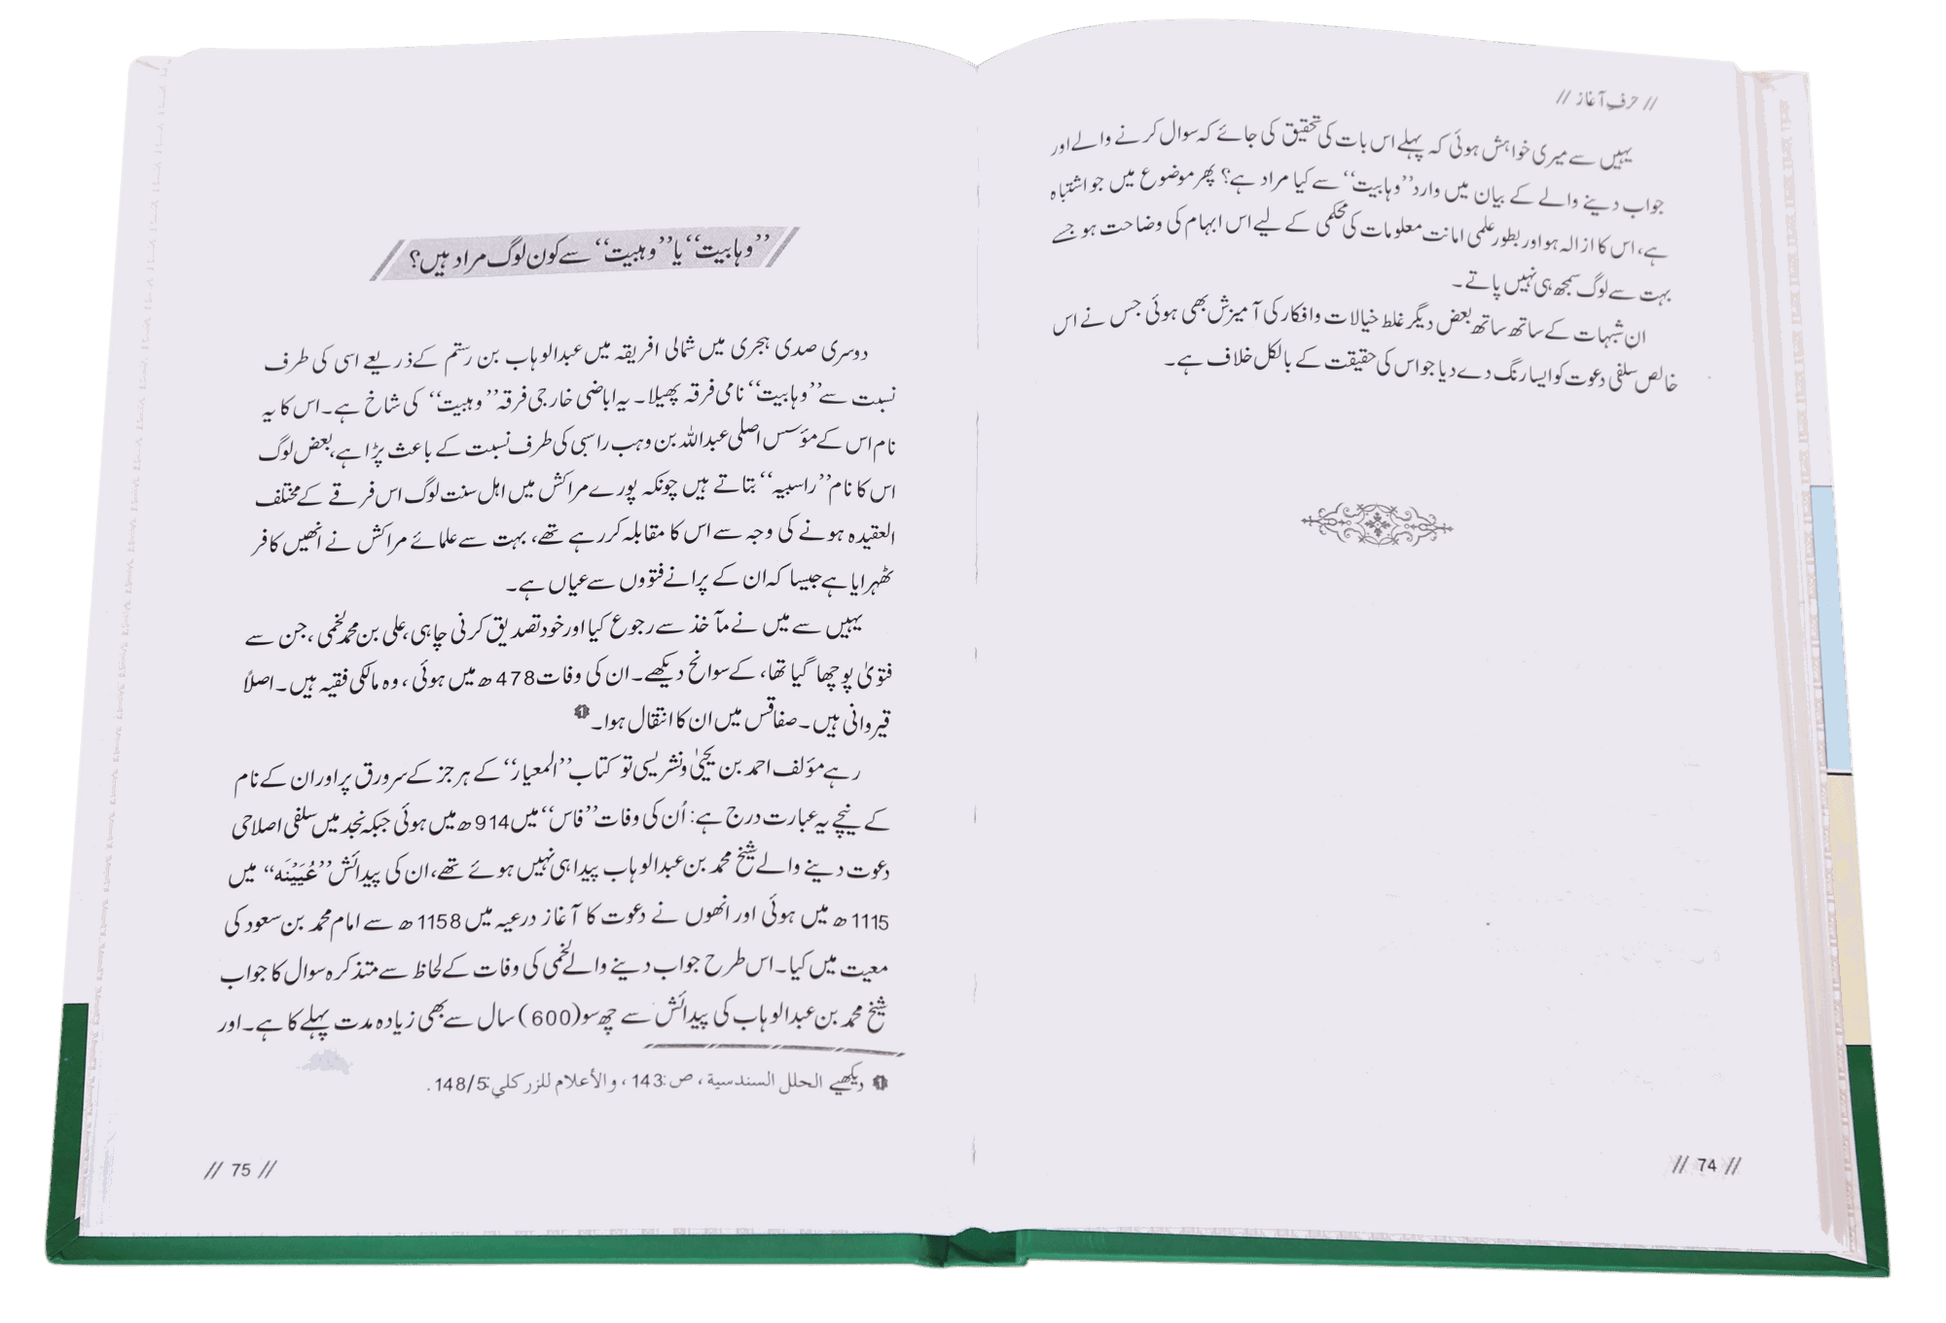 // حرفِ آغاز //
یہیں سے میری خواہش ہوئی کہ پہلے اس بات کی تحقیق کی جائے کہ سوال کرنے والے اور
جواب دینے والے کے بیان میں وارد ’’وہابیت‘‘ سے کیا مراد ہے؟ پھر موضوع میں جو اشتباہ
ہے، اس کا ازالہ ہو اور بطور علمی امانت معلومات کی محکمی کے لیے اس ابہام کی وضاحت ہو جسے
بہت سے لوگ سمجھ ہی نہیں پاتے۔
ان شبہات کے ساتھ ساتھ بعض دیگر غلط خیالات و افکار کی آمیزش بھی ہوئی جس نے اس
خالص سلفی دعوت کو ایسا رنگ دے دیا جو اس کی حقیقت کے بالکل خلاف ہے۔
// 74 //
’’وہابیت‘‘ یا ’’وہبیت‘‘ سے کون لوگ مراد ہیں؟
دوسری صدی ہجری میں شمالی افریقہ میں عبدالوہاب بن رستم کے ذریعے اسی کی طرف
نسبت سے ’’وہابیت‘‘ نامی فرقہ پھیلا۔ یہ اباضی خارجی فرقہ ’’وہبیت‘‘ کی شاخ ہے۔ اس کا یہ
نام اس کے مؤسس اصلی عبداللہ بن وہب راسبی کی طرف نسبت کے باعث پڑا ہے، بعض لوگ
اس کا نام ’’راسبیہ‘‘ بتاتے ہیں چونکہ پورے مراکش میں اہل سنت لوگ اس فرقے کے مختلف
العقیدہ ہونے کی وجہ سے اس کا مقابلہ کر رہے تھے، بہت سے علمائے مراکش نے انھیں کافر
ٹھہرایا ہے جیسا کہ ان کے پرانے فتووں سے عیاں ہے۔
یہیں سے میں نے مآخذ سے رجوع کیا اور خود تصدیق کرنی چاہی، علی بن محمد لخمی، جن سے
فتویٰ پوچھا گیا تھا، کے سوانح دیکھے۔ ان کی وفات 478ھ میں ہوئی، وہ مالکی فقیہ ہیں۔ اصلاً
قیروانی ہیں۔ صفاقس میں ان کا انتقال ہوا۔ 1
رہے مؤلف احمد بن یحییٰ ونشریسی تو کتاب ’’المعیار‘‘ کے ہر جز کے سرورق پر اور ان کے نام
کے نیچے یہ عبارت درج ہے: اُن کی وفات ’’فاس‘‘ میں 914ھ میں ہوئی جبکہ نجد میں سلفی اصلاحی
دعوت دینے والے شیخ محمد بن عبدالوہاب پیدا ہی نہیں ہوئے تھے، ان کی پیدائش ’’عُیَیْنَہ‘‘ میں
1115ھ میں ہوئی اور انھوں نے دعوت کا آغاز درعیہ میں 1158ھ سے امام محمد بن سعود کی
معیت میں کیا۔ اس طرح جواب دینے والے لخمی کی وفات کے لحاظ سے متذکرہ سوال کا جواب
شیخ محمد بن عبدالوہاب کی پیدائش سے چھ سو (600) سال سے بھی زیادہ مدت پہلے کا ہے۔ اور
1 دیکھیے الحلل السندسية، ص:143، والأعلام للزركلي:148/5.
// 75 //